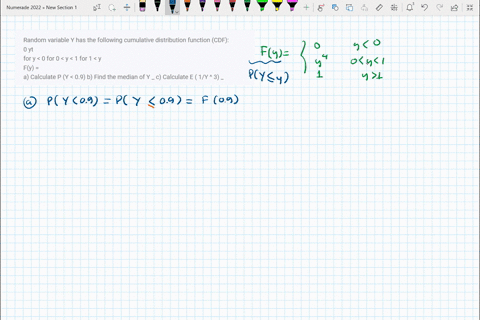 Numerade 2022 » New Section 1
Random variable Y has the following cumulative distribution function (CDF):
0 yt
for y < 0 for 0 < y < 1 for 1 < y
F(y) =
a) Calculate P (Y < 0.9) b) Find the median of Y _ c) Calculate E ( 1/Y ^ 3) _
F(y) = { 0 y < 0
y⁴ 0 < y < 1
P(Y ≤ y) 1 y > 1
ⓐ P(Y < 0.9) = P(Y ≤ 0.9) = F(0.9)